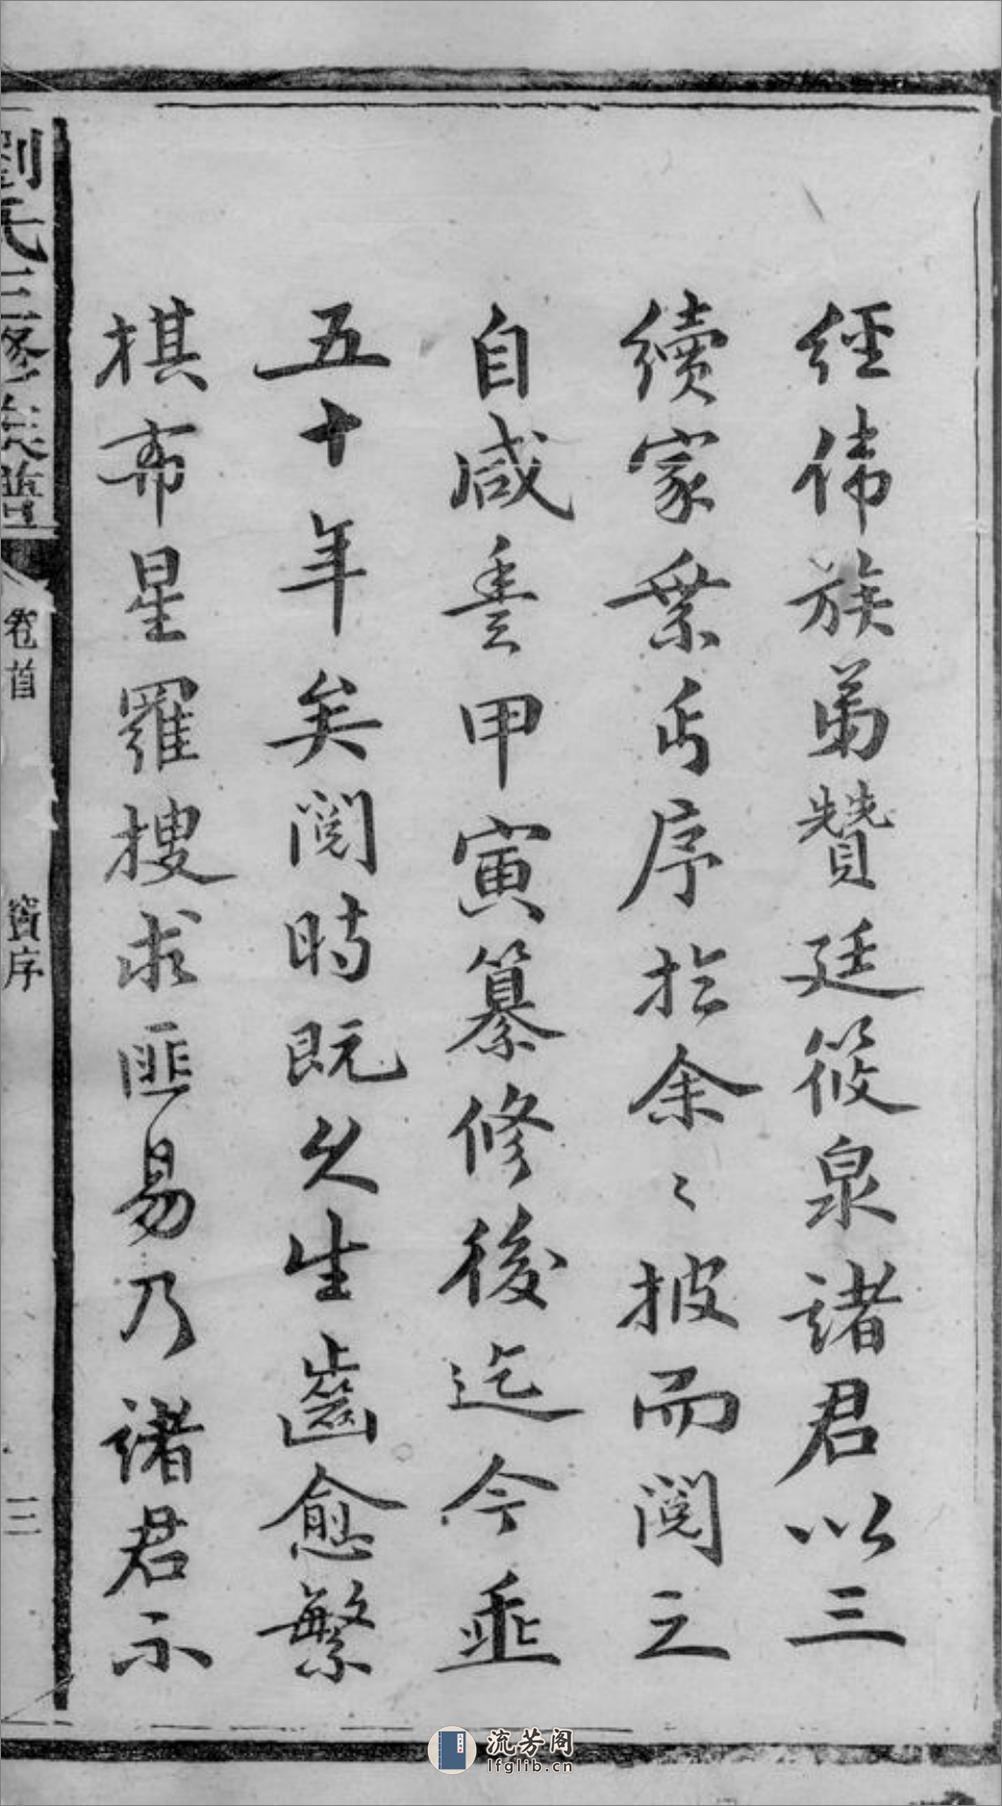 經偉族弟贊廷筱泉諸君以三
續家乘丐序於余〻披而閱之
自咸豐甲寅纂修後迄今垂
五十年矣閱時既久生齒愈繁
棋布星羅搜求匪易乃諸君不
劉氏三修族譜
卷首
賓序
三
流芳阁
lfglib.cn